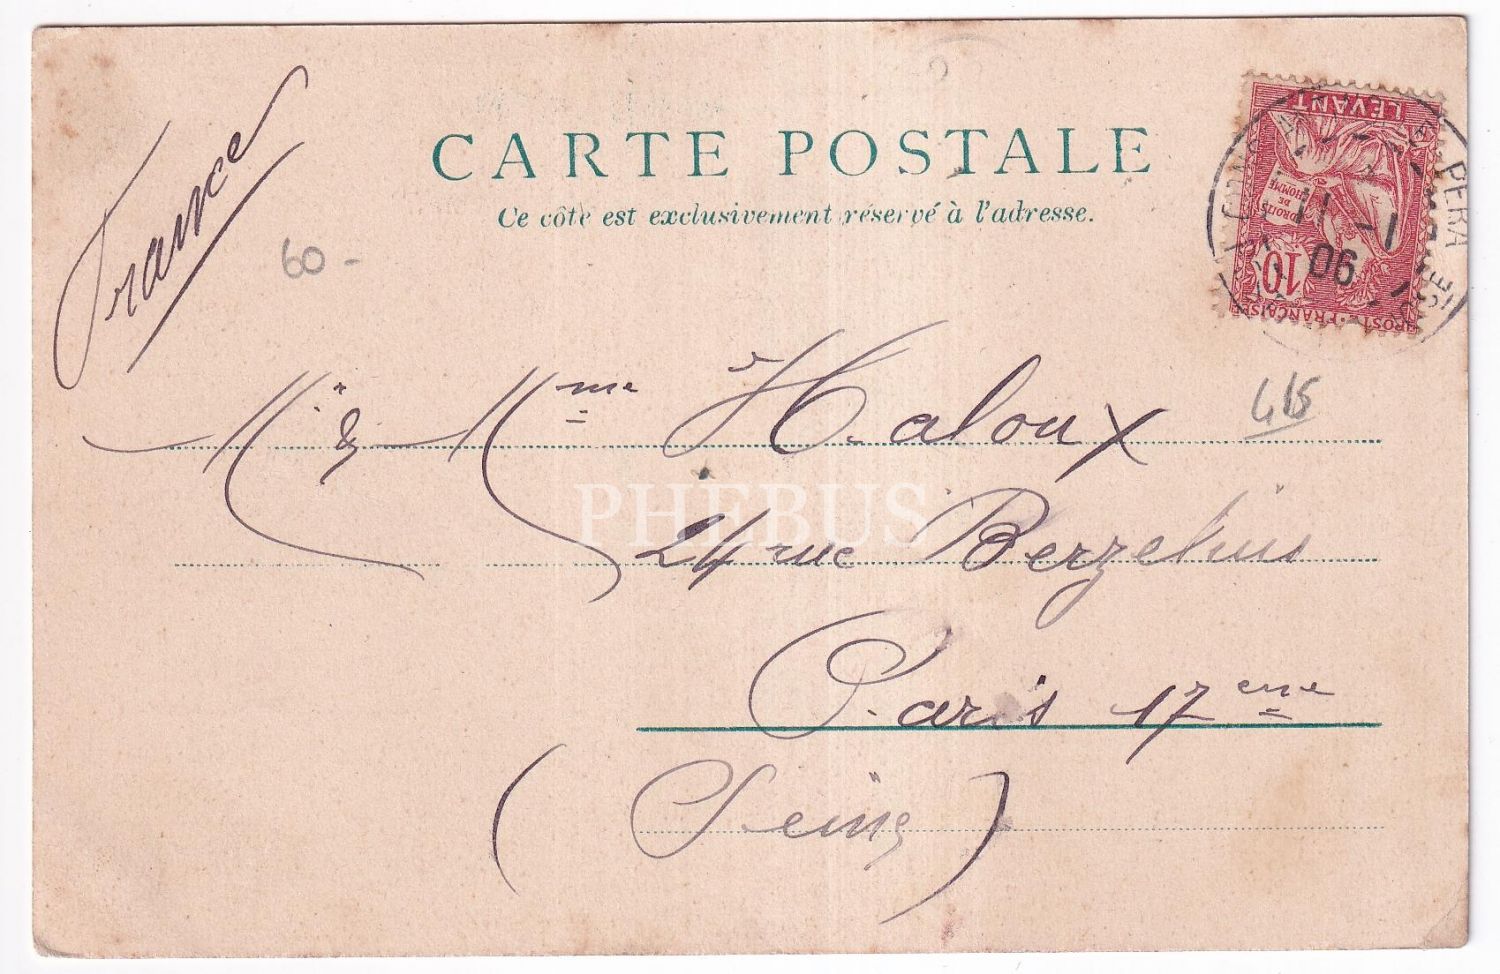 France
CARTE POSTALE
Ce côté est exclusivement réservé à l'adresse.
60 -
LEVANT
DROITS
DE
L'HOMME
10
POSTE FRANÇAISE
PERA
11 -1
06
415
M. & Mme Haloux
PHEBUS
24 rue Berzelius
Paris 17eme
(Seine)